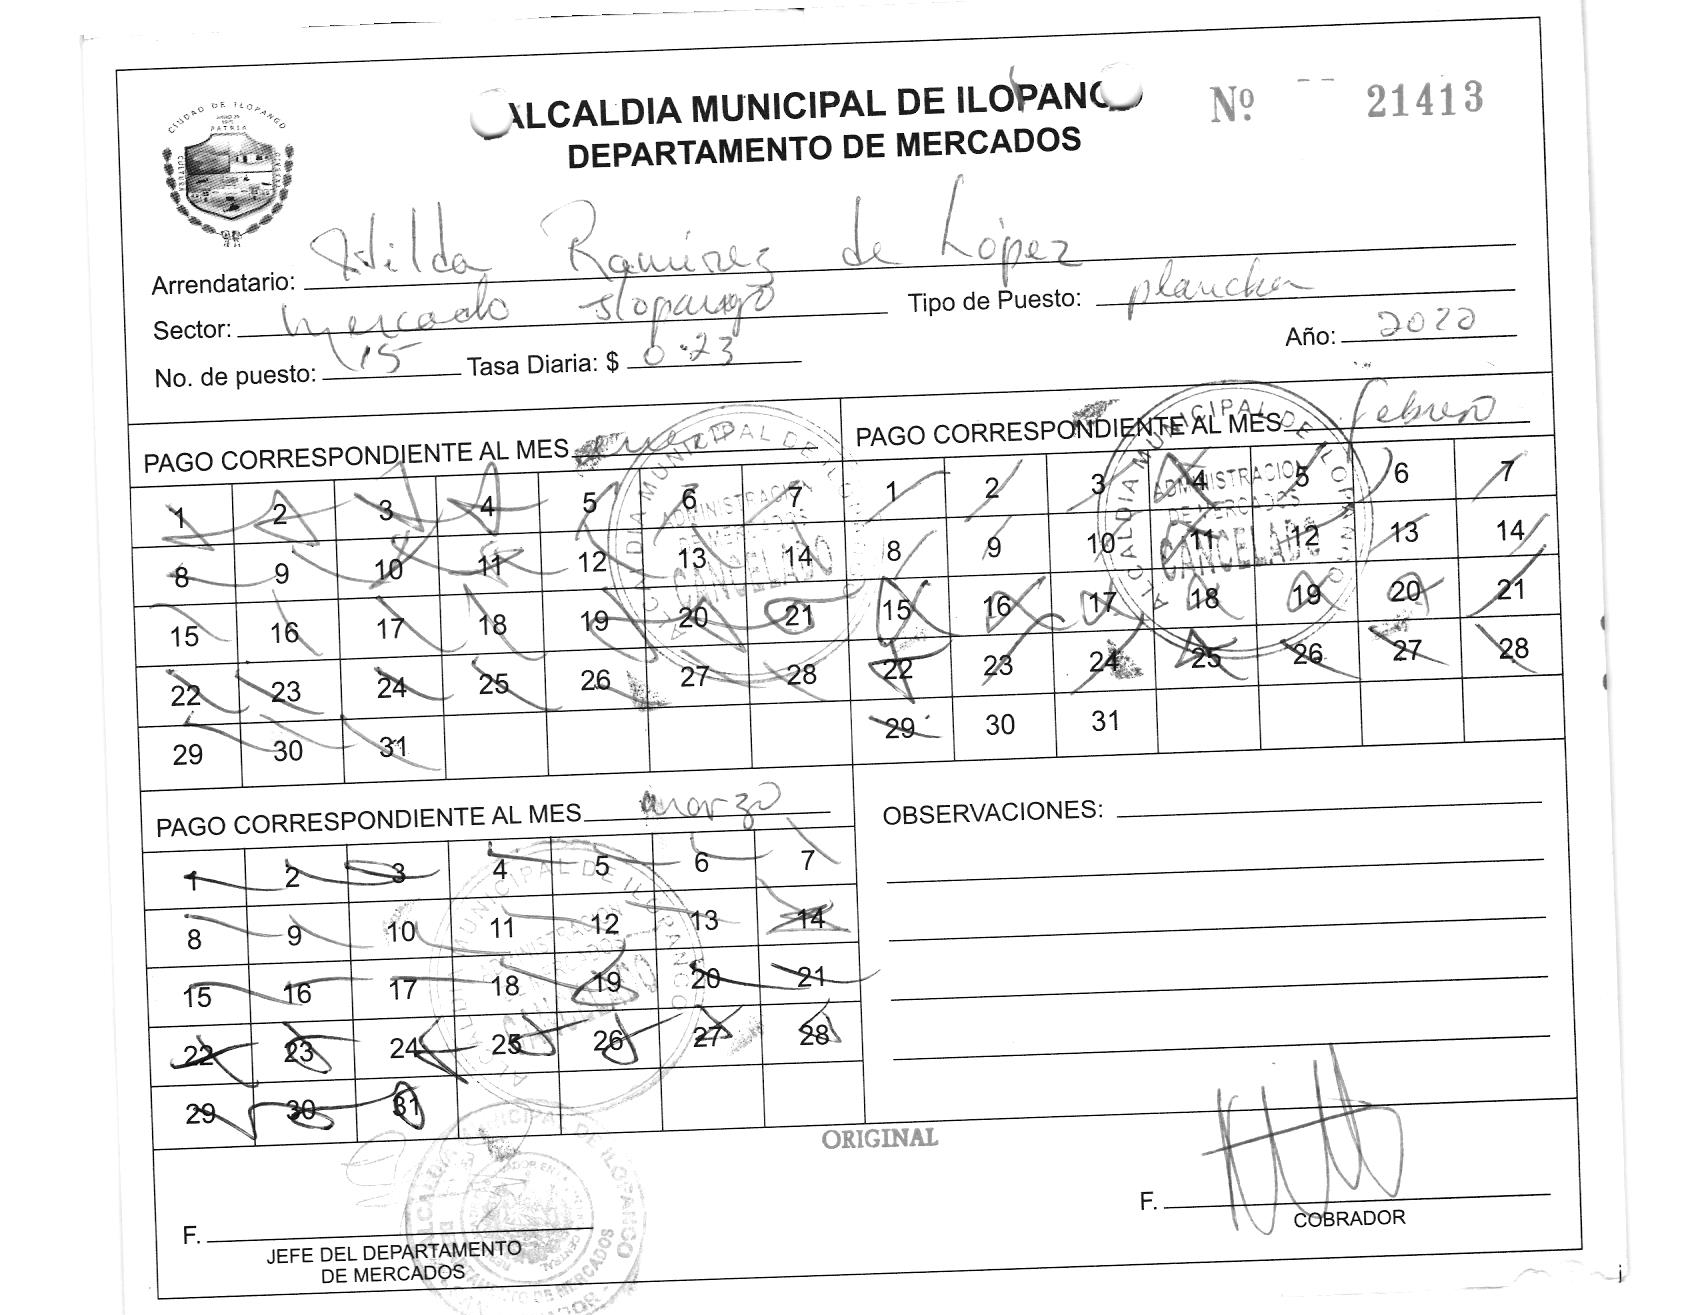 CIUDAD DE ILOPANGO
PATRIA
ALCALDIA MUNICIPAL DE ILOPANGO
DEPARTAMENTO DE MERCADOS
Nº 21413
Arrendatario: Hilda Ramírez de López
Sector: mercado Ilopango Tipo de Puesto: plancha
No. de puesto: 15 Tasa Diaria: $ 0.23 Año: 2022
PAGO CORRESPONDIENTE AL MES enero
1 2 3 4 5 6 7
8 9 10 11 12 13 14
15 16 17 18 19 20 21
22 23 24 25 26 27 28
29 30 31
ALCALDIA MUNICIPAL DE ILOPANGO
ADMINISTRACION
DE MERCADOS
CANCELADO
PAGO CORRESPONDIENTE AL MES febrero
1 2 3 4 5 6 7
8 9 10 11 12 13 14
15 16 17 18 19 20 21
22 23 24 25 26 27 28
29 30 31
ALCALDIA MUNICIPAL DE ILOPANGO
ADMINISTRACION
DE MERCADOS
CANCELADO
PAGO CORRESPONDIENTE AL MES marzo
1 2 3 4 5 6 7
8 9 10 11 12 13 14
15 16 17 18 19 20 21
22 23 24 25 26 27 28
29 30 31
ALCALDIA MUNICIPAL DE ILOPANGO
ADMINISTRACION
DE MERCADOS
CANCELADO
OBSERVACIONES:
ORIGINAL
F.
JEFE DEL DEPARTAMENTO
DE MERCADOS
ALCALDIA MUNICIPAL DE ILOPANGO
DEPARTAMENTO DE MERCADOS
F.
COBRADOR